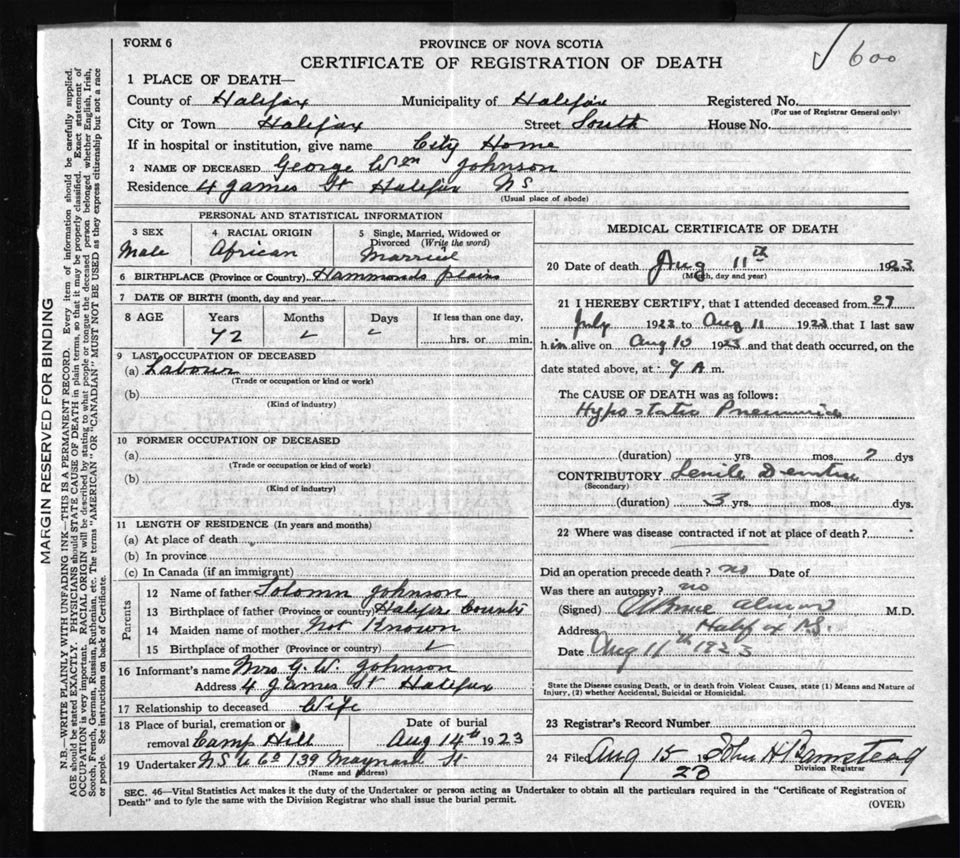 FORM 6
PROVINCE OF NOVA SCOTIA
CERTIFICATE OF REGISTRATION OF DEATH
√ 600
1 PLACE OF DEATH—
County of Halifax Municipality of Halifax Registered No.
(For use of Registrar General only)
City or Town Halifax Street South House No.
If in hospital or institution, give name City Home
2 NAME OF DECEASED George Wm Johnson
Residence 4 James St Halifax NS
(Usual place of abode)
PERSONAL AND STATISTICAL INFORMATION
3 SEX 4 RACIAL ORIGIN 5 Single, Married, Widowed or
Divorced (Write the word)
Male African Married
6 BIRTHPLACE (Province or Country) Hammonds plains
7 DATE OF BIRTH (month, day and year)
8 AGE Years Months Days If less than one day,
72 hrs. or min.
9 LAST OCCUPATION OF DECEASED
(a) Labour
(Trade or occupation or kind or work)
(b)
(Kind of industry)
10 FORMER OCCUPATION OF DECEASED
(a)
(Trade or occupation or kind of work)
(b)
(Kind of industry)
11 LENGTH OF RESIDENCE (In years and months)
(a) At place of death
(b) In province
(c) In Canada (if an immigrant)
Parents
12 Name of father Solomn Johnson
13 Birthplace of father (Province or country) Halifax County
14 Maiden name of mother Not Known
15 Birthplace of mother (Province or country)
16 Informant's name Mrs G. W. Johnson
Address 4 James St Halifax
17 Relationship to deceased Wife
18 Place of burial, cremation or Date of burial
removal Camp Hill Aug 14th 1923
19 Undertaker N S U Co 139 Maynard St
(Name and Address)
MEDICAL CERTIFICATE OF DEATH
20 Date of death Aug 11th 1923
(Month, day and year)
21 I HEREBY CERTIFY, that I attended deceased from 27
July 1923 to Aug 11 1923 that I last saw
him alive on Aug 10 1923 and that death occurred, on the
date stated above, at 9 A m.
The CAUSE OF DEATH was as follows:
Hypostatic Pneumonia
(duration) yrs. mos. 7 dys
CONTRIBUTORY Senile Dementia
(Secondary)
(duration) 3 yrs. mos. dys.
22 Where was disease contracted if not at place of death?
Did an operation precede death? no Date of
Was there an autopsy? no
(Signed) Almon M.D.
Address Halifax N.S.
Date Aug 11th 1923
State the Disease causing Death, or in death from Violent Causes, state (1) Means and Nature of
Injury, (2) whether Accidental, Suicidal or Homicidal.
23 Registrar's Record Number
24 Filed Aug 15 19 John H Barnstead
23 Division Registrar
SEC. 46—Vital Statistics Act makes it the duty of the Undertaker or person acting as Undertaker to obtain all the particulars required in the "Certificate of Registration of
Death" and to fyle the same with the Division Registrar who shall issue the burial permit.
(OVER)
MARGIN RESERVED FOR BINDING
N.B.—WRITE PLAINLY WITH UNFADING INK—THIS IS A PERMANENT RECORD. Every item of information should be carefully supplied.
AGE should be stated EXACTLY. PHYSICIANS should STATE CAUSE OF DEATH in plain terms, so that it may be properly classified. Exact statement of
OCCUPATION is very important. RACIAL ORIGIN will be described by stating to what people or tongue the deceased person belonged whether English, Irish,
Scotch, French, German, Russian, Ruthenian, etc. The terms "AMERICAN" OR "CANADIAN" MUST NOT BE USED as they express citizenship but not a race
or people. See instructions on back of Certificate.